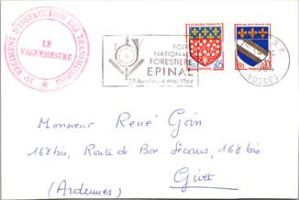 18e REGIMENT D'INSTRUCTION DES TRANSMISSIONS
LE
VAGUEMESTRE
FOIRE
NATIONALE
FORESTIERE
EPINAL
VOSGES
Monsieur René Goin
168 bis, Route de Bon Secours, 168 bis
Givet
(Ardennes)